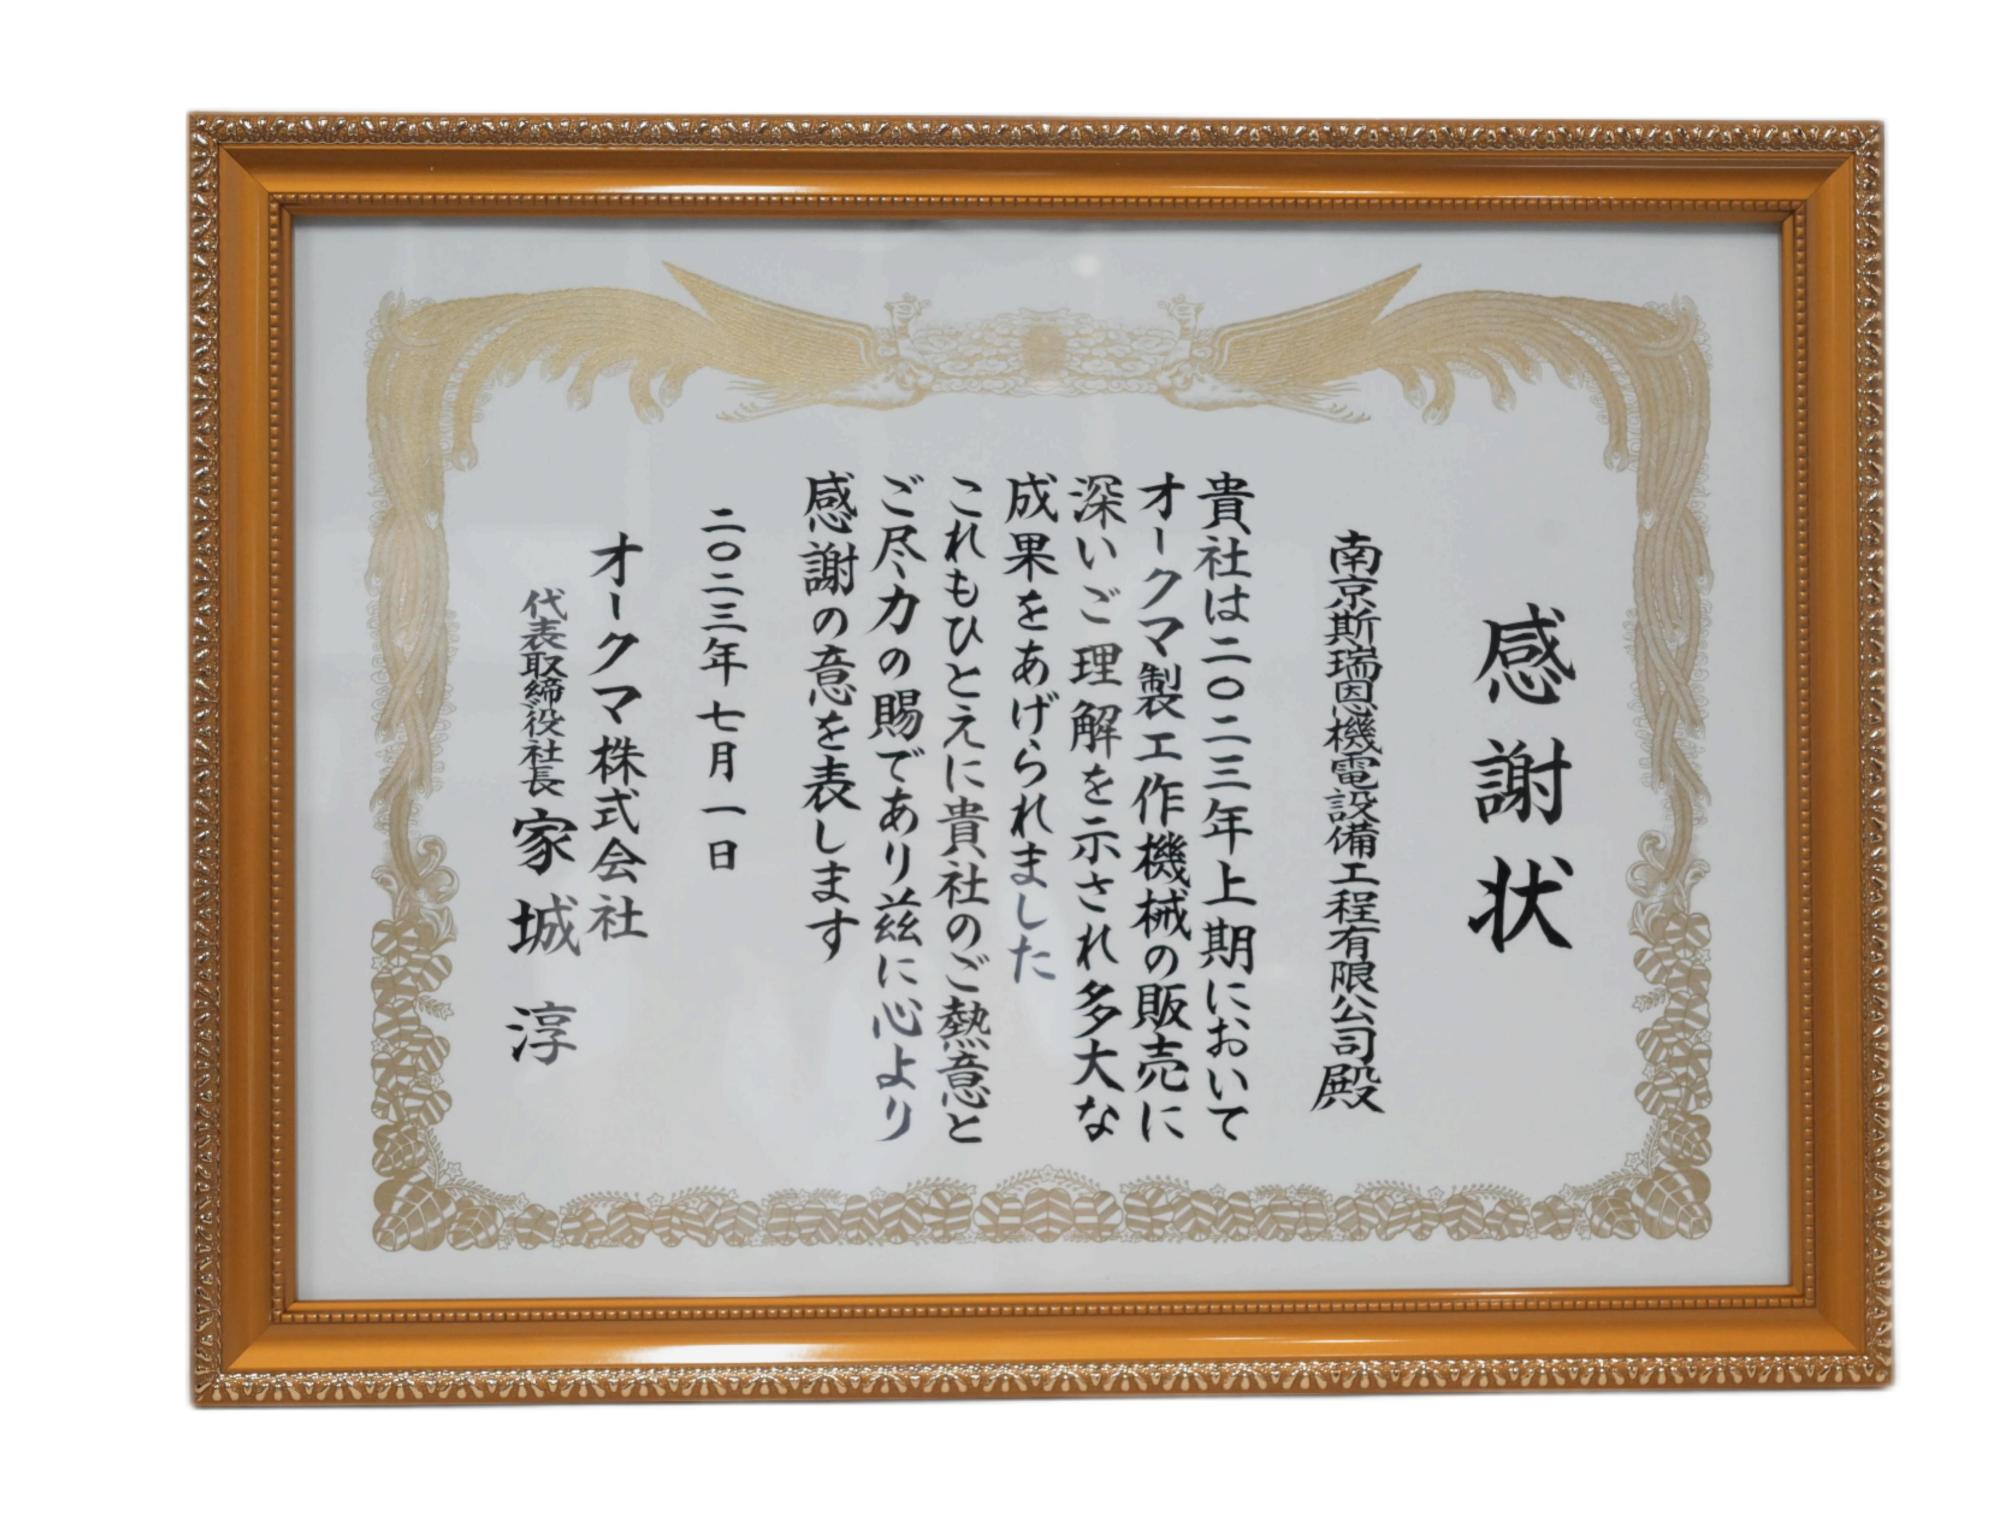 感謝状
南京斯瑞恩機電設備工程有限公司殿
貴社は二〇二三年上期において
オークマ製工作機械の販売に
深いご理解を示され多大な
成果をあげられました
これもひとえに貴社のご熱意と
ご尽力の賜であり茲に心より
感謝の意を表します
二〇二三年七月一日
オークマ株式会社
代表取締役社長 家城 淳